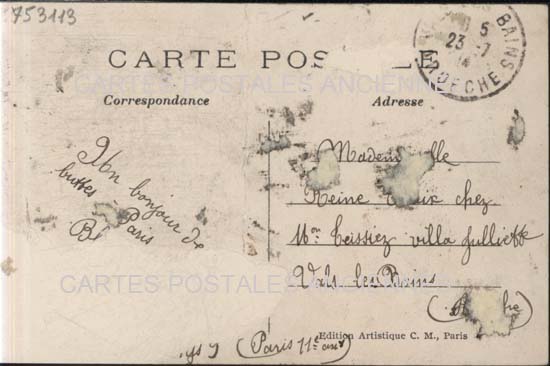 753113
CARTE POS LE
CARTES POSTALES ANCIENNES
Correspondance
Adresse
BAINS
5
23 -7
14
ARDECHE
Un bonjour de
buttes
Paris
Mademoiselle
Reine chez
Mr Teissiez villa Julliette
Vals les Bains
CARTES POSTALES ANCIENNES
Edition Artistique C. M., Paris
(Paris 11e arr)